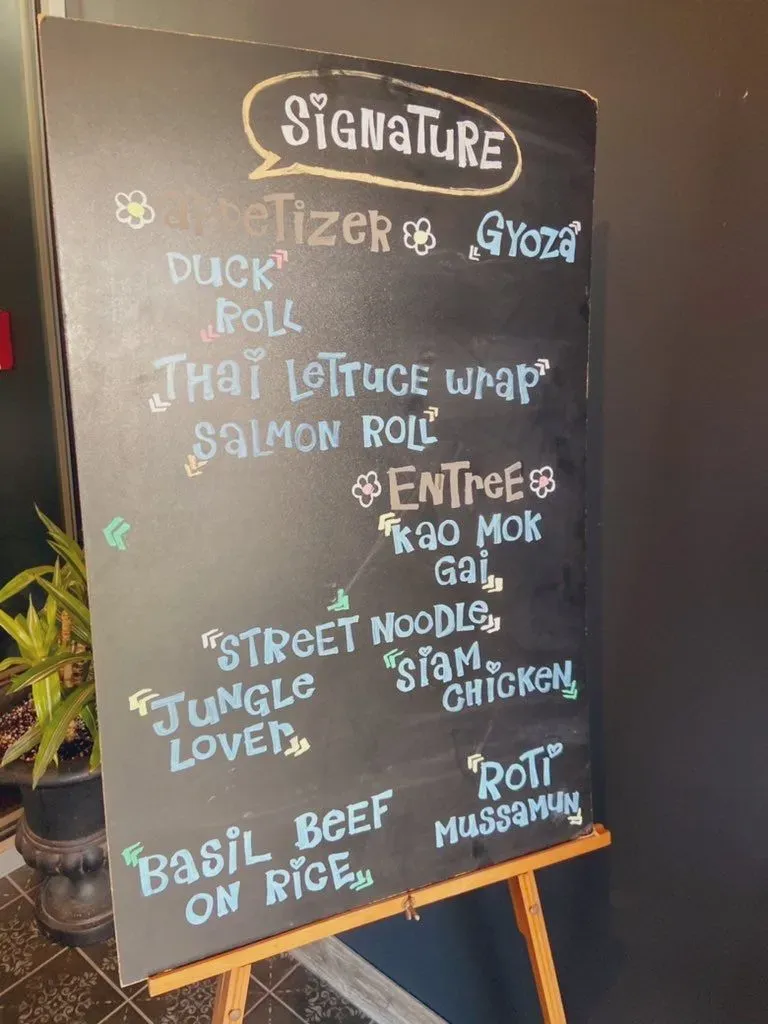 SiGNaTURE
appeTizeR
GYOZa
DUCK
ROLL
THai LeTTUCE wrap
SaLMON ROLL
ENTreE
Kao MOK
Gai
STReeT NOODLe
SiaM
CHiCKeN
JUNGLe
LOVer
ROTi
MUSSaMUN
BaSiL BeeF
ON RiCE